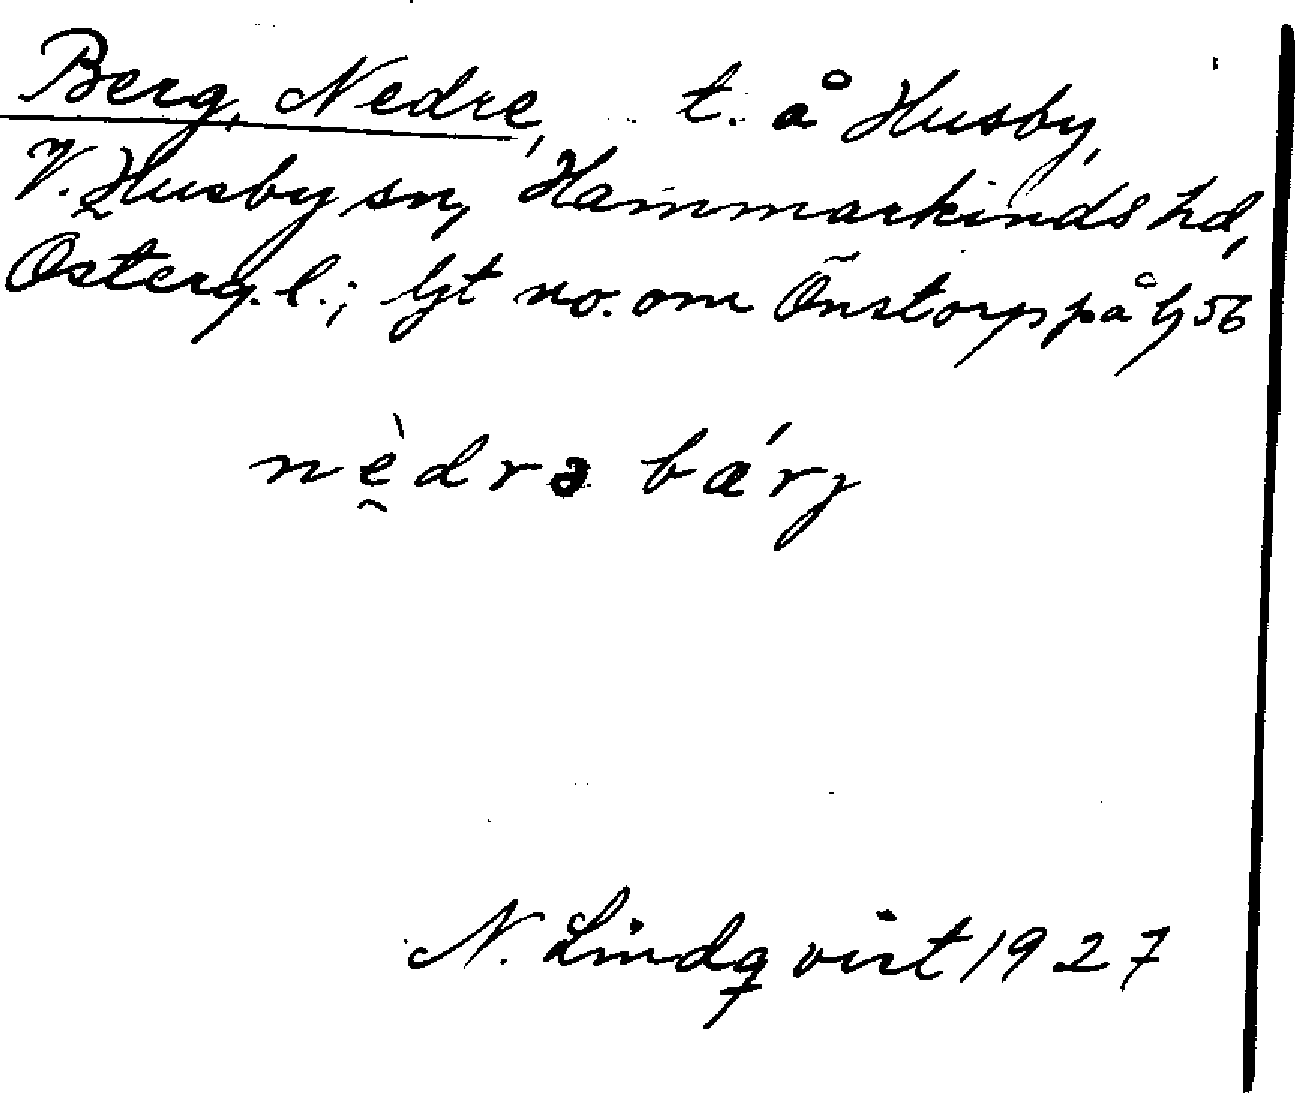 Berg, Nedre, t. å Husby,
V. Husby sn, Hammarkinds hd,
Österg. l.; ljt no. om Önstorp på bl 56
nèdrə bærj́
N. Lindqvist 1927